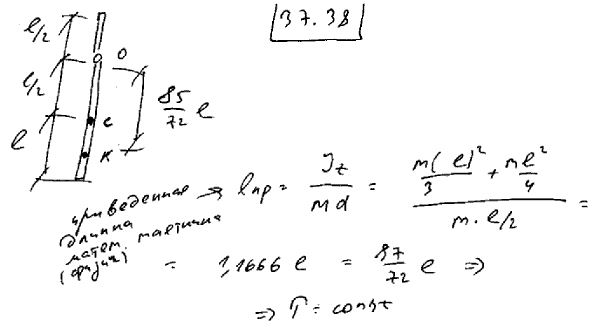 37.38
l/2
l/2
l
O
c
K
85/72 l
приведенная
длинна
матем. маятника
(физич)
l пр = Jz/md = (m(l)²/3 + ml²/4)/(m·l/2) =
= 1,1666 l = 87/72 l ⇒
⇒ T = const